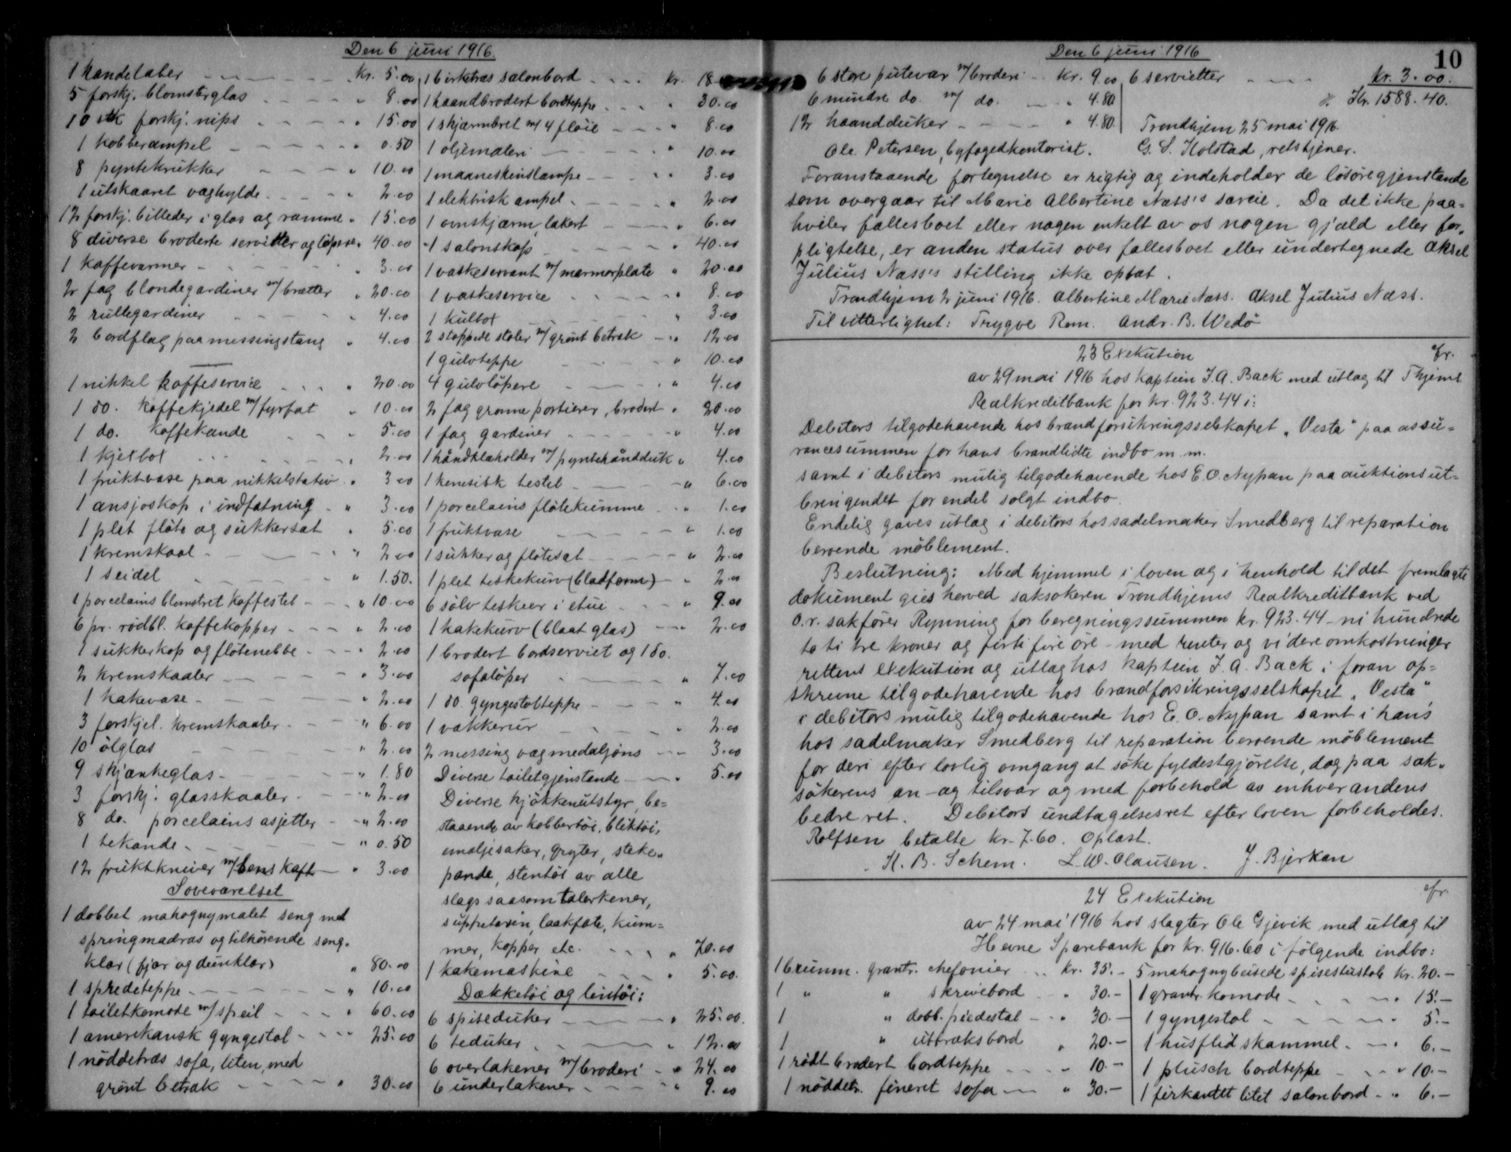 Den 6 juni 1916.
1 kandelaber kr. 5.00
5 forskj. blomsterglas " 8.00
10 stk forskj. nips " 15.00
1 kobberampel " 0.50
8 pyntekrukker " 10.00
1 utskaaret væghylde " 2.00
12 forskj. billeder i glas og ramme " 15.00
8 diverse broderte servietter og løpere " 40.00
1 kaffevarmer " 3.00
2 fag blondegardiner m/brætter " 20.00
2 rullegardiner " 4.00
2 bordflag paa messingstang " 4.00
1 nikkel kaffeservice " 20.00
1 do. kaffekjedel m/fyrfat " 10.00
1 do. kaffekande " 5.00
1 kjelbol " 2.00
1 fruktvase paa nikkelstativ " 3.00
1 ansjoskop i indfatning " 3.00
1 plet fløte og sukkersæt " 5.00
1 kremskaal " 2.00
1 seidel " 1.50.
1 porcelains blomstret kaffestel " 10.00
6 pr. rødbl. kaffekopper " 2.00
1 sukkerkop og fløtenebbe " 2.00
2 kremskaaler " 3.00
1 kakevase " 2.00
3 forskjel. kremskaaler " 6.00
10 ølglas " 2.00
9 skjænkeglas " 1.80
3 forskj. glasskaaler " 2.00
8 do. porcelains asjetter " 2.00
1 tekande " 0.50
12 fruktkniver m/benskaft " 3.00
Soveværelset
1 dobbet mahognymalet seng med
springmadras og tilhørende seng-
klær (fjær og dunklær) " 80.00
1 spredeteppe " 10.00
1 toiletkomode m/speil " 60.00
1 amerikansk gyngestol " 25.00
1 nøddetræs sofa, liten, med
grønt betræk " 30.00
1 birketræs salonbord kr. 18
1 haandbrodert bordteppe " 30.00
1 skjærmbret m/4 fløie " 8.00
1 oljemaleri " 10.00
1 maaneskinslampe " 3.00
1 elektrisk ampel " 2.00
1 ovnskjærm, lakert " 6.00
1 salonskap " 40.00
1 vaskeservant m/marmorplate " 20.00
1 vaskeservice " 8.00
1 kulbox " 3.00
2 stoppede stoler m/grønt betræk " 12.00
1 gulvteppe " 10.00
4 gulvløpere " 4.00
2 fag grønne portierer, brodert " 20.00
1 fag gardiner " 4.00
1 håndklæholder m/pyntehåndduk " 4.00
1 kinesisk testel " 6.00
1 porcelains fløtekumme " 1.00
1 fruktvase " 1.00
1 sukker og fløtesæt " 2.00
1 plet teskekurv (bladform) " 2.00
6 sølv teskeer i etui " 9.00
1 kakekurv (blaat glas) " 2.00
1 brodert bordserviet og 1 do.
sofaløper " 7.00
1 do gyngestolteppe " 4.00
1 vækkerur " 2.00
2 messing vægmedaljons " 3.00
Diverse toiletgjenstande " 5.00
Diverse kjøkkenutstyr, be=
staaende av kobbertøi, bliktøi,
emaljesaker, gryter, steke-
pande, stentøi av alle
slags saasom talerkener,
suppeterin, laakfate, kum=
mer, kopper etc. " 70.00
1 kakemaskine " 5.00
Dækketøi og lintøi:
6 spiseduker " 25.00
6 teduker " 12.00
6 overlakener m/broderi " 24.00
6 underlakener " 9.00
Den 6 juni 1916
10
6 store putevar m/broderi kr. 9.00
6 mindre do. m/ do. " 4.80
12 haandduker " 4.80
6 servietter kr. 3.00.
Kr. 1588.40.
Trondhjem 25 mai 1916
Ole Petersen, byfogedkontorist. G. S. Holstad, retstjener.
Foranstaaende fortegnelse er rigtig og indeholder de løsøregjenstande
som overgaar til Marie Albertine Næss's særeie. Da det ikke paa-
hviler fællesboet eller nogen enkelt av os nogen gjæld eller for-
pligtelse, er anden status over fællesboet eller undertegnede Aksel
Julius Næss's stilling ikke optat.
Trondhjem 2 juni 1916. Albertine Marie Næss. Aksel Julius Næss.
Til vitterlighet: Trygve Rom. Andr. B. Wedø
23 Exekution
av 29 mai 1916 hos kaptein J. A. Back med utlæg til T.hjems
Realkreditbank for kr. 923.44 i:
Debitors tilgodehavende hos brandforsikringsselskapet „Vesta" paa assu=
rancesummen for hans brandlidte indbo m. m.
samt i debitors mulig tilgodehavende hos E. O. Nypan paa auktionsut-
bringendet for endel solgt indbo.
Endelig gaves utlæg i debitors hos sadelmaker Smedberg til reparation
beroende møblement.
Beslutning: Med hjemmel i loven og i henhold til det fremlagte
dokument gies herved saksøkeren Trondhjems Realkreditbank ved
o.r. sakfører Rynning for beregningssummen kr. 923.44 - ni hundrede
to ti tre kroner og førti fire øre - med renter og videre omkostninger
rettens exekution og utlæg hos kaptein J. A. Back i foran op=
skrevne tilgodehavende hos brandforsikringsselskapet „Vesta"
i debitors mulig tilgodehavende hos E. O. Nypan samt i hans
hos sadelmaker Smedberg til reparation beroende møblement
for deri efter lovlig omgang at søke fyldestgjørelse, dog paa sak-
søkerens an- og tilsvar og med forbehold av enhver andens
bedre ret. Debitors undtagelsesret efter loven forbeholdes.
Rolfsen betalte kr. 7.60. Oplæst.
H. B. Schem. L. W. Clausen. J. Bjerkan
24 Exekution
av 24 mai 1916 hos slagter Ole Gjevik med utlæg til
Hevne Sparebank for kr. 916.60 i følgende indbo:
1 brunm. grantr. chefonier kr. 35.-
1 " " skrivebord " 30.-
1 " dobb. piedestal " 30.-
1 " uttræksbord " 20.-
1 rødt brodert bordteppe " 10.-
1 nøddetr. fineret sofa " 30.-
5 mahognybeisede spisestustole kr. 20.-
1 grantr. komode " 15.-
1 gyngestol " 5.-
1 husflidskammel " 6.-
1 plusch bordteppe " 10.-
1 firkantet litet salonbord " 6.-